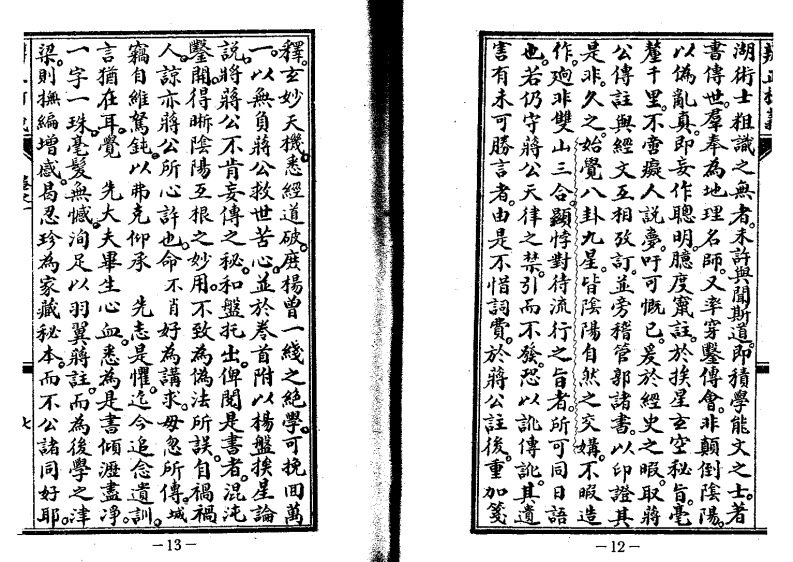 湖術士粗識之無者未許與聞斯道即積學能文之士著
書傳世羣奉為地理名師又率穿鑿傳會非顛倒陰陽
以偽亂真即妄作聰明臆度竄註於挨星玄空秘旨毫
釐千里不啻癡人説夢吁可慨已爰於經史之暇取蔣
公傳註與經文互相攷訂並旁稽管郭諸書以印證其
是非久之始覺八卦九星皆陰陽自然之交媾不暇造
作迥非雙山三合顯悖對待流行之旨者所可同日語
也若仍守蔣公天律之禁引而不發恐以訛傳訛其遺
害有未可勝言者由是不惜詞費於蔣公註後重加箋
—12—
釋玄妙天機悉經道破庶楊曾一綫之絕學可挽回萬
一以無負蔣公救世苦心並於卷首附以楊盤挨星論
説將蔣公不肯妄傳之秘和盤托出俾閱是書者混沌
鑿開得晰陰陽互根之妙用不致為偽法所誤自禍禍
人諒亦蔣公所心許也命不肖好為講求毋忽所傳城
竊自維駑鈍以弗克仰承 先志是懼迄今追念遺訓
言猶在耳覺 先大夫畢生心血悉為是書傾瀝盡淨
一字一珠毫髮無憾洵足以羽翼蔣註而為後學之津
梁則撫編增感曷忍珍為家藏秘本而不公諸同好耶
—13—